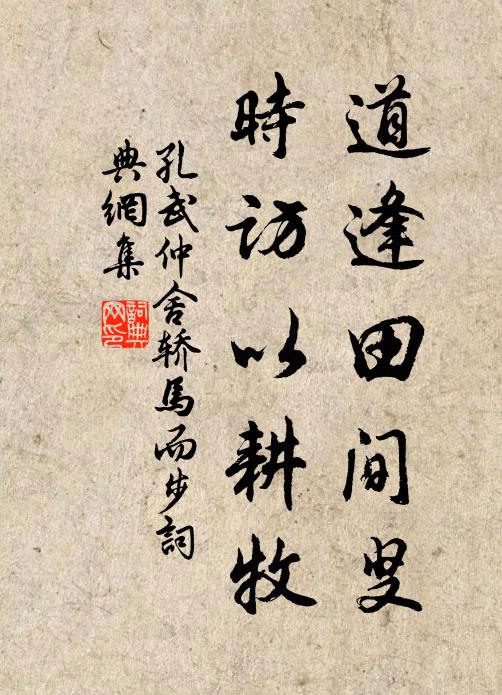 道逢田间叟
時访以耕牧
孔武仲舍轿馬而步詞
典網集
詞典
网印